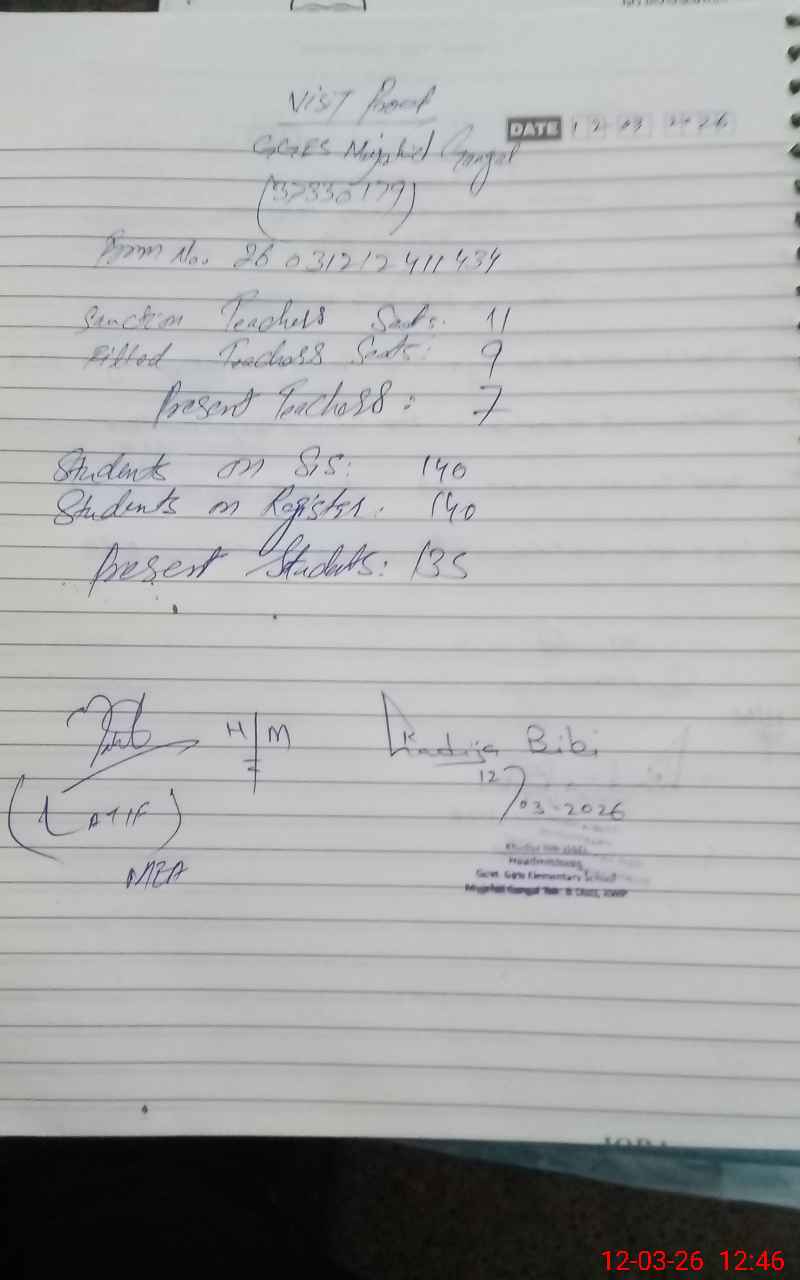 Visit Proof
DATE 12 03 2026
GGES Mujahid Gangal
(37330179)
Form No. 26031212411434
Sanction Teachers Seats: 11
Filled Teachers Seats: 9
Present Teachers: 7
Students on SIS: 140
Students on Register: 140
Present Students: 135
H/M
Khadija Bibi
12/03-2026
(LATIF)
MEA
Headmistress
Govt. Girls Elementary School
Mujahid Gangal Teh & Distt, RWP
12-03-26 12:46